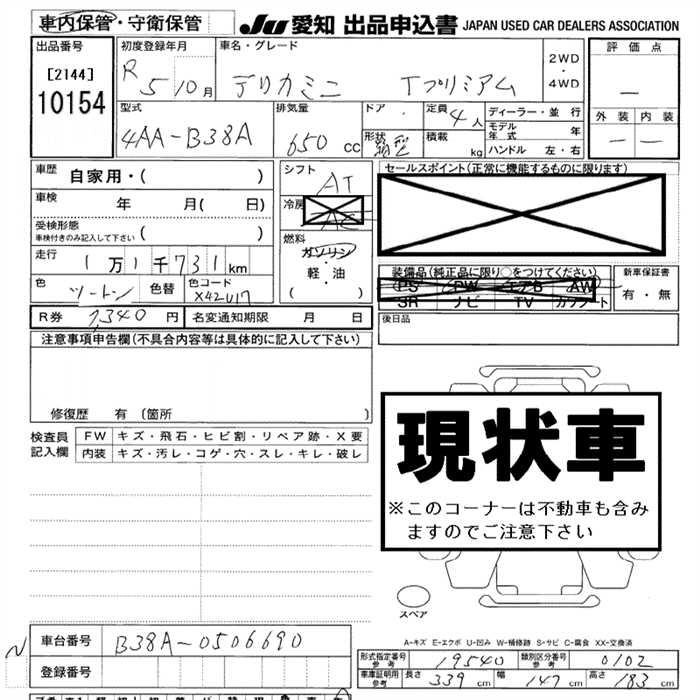 車内保管・守衛保管
JU 愛知 出品申込書 JAPAN USED CAR DEALERS ASSOCIATION
出品番号 初度登録年月 車名・グレード 評価点
[2144] R 5 10月 デリカミニ Tプレミアム 2WD・4WD —
10154
型式 排気量 ドア 定員 4人 ディーラー・並行 外装 内装
4AA-B38A 650 cc 形状 積載 kg モデル年式 年 — —
ハンドル 左・右
車歴 自家用・( ) シフト AT セールスポイント(正常に機能するものに限ります)
車検 年 月( 日) 冷房 AC
受検形態
車検付きのみ記入して下さい ( ) 燃料
走行 1万1千731km ガソリン・軽・油 装備品(純正品に限り○をつけてください) 新車保証書
( ) PS PW エアB AW 有・無
色 ツートン 色替 色コード X42U17 SR ナビ TV カワシート
R券 7,340 円 名変通知期限 月 日 後日品
注意事項申告欄(不具合内容等は具体的に記入して下さい)
修復歴 有 (箇所 )
検査員記入欄 FW キズ・飛石・ヒビ割・リペア跡・X要
内装 キズ・汚レ・コゲ・穴・スレ・キレ・破レ
現状車
※このコーナーは不動車も含み
ますのでご注意下さい
スペア
A-キズ E-エクボ U-凹み W-補修跡 S-サビ C-腐食 XX-交換済
車台番号 B38A-0506690
登録番号
形式指定番号 参考 19540 類別区分番号 参考 0102
車庫証明用 参考 長さ 339 cm 幅 147 cm 高さ 183 cm